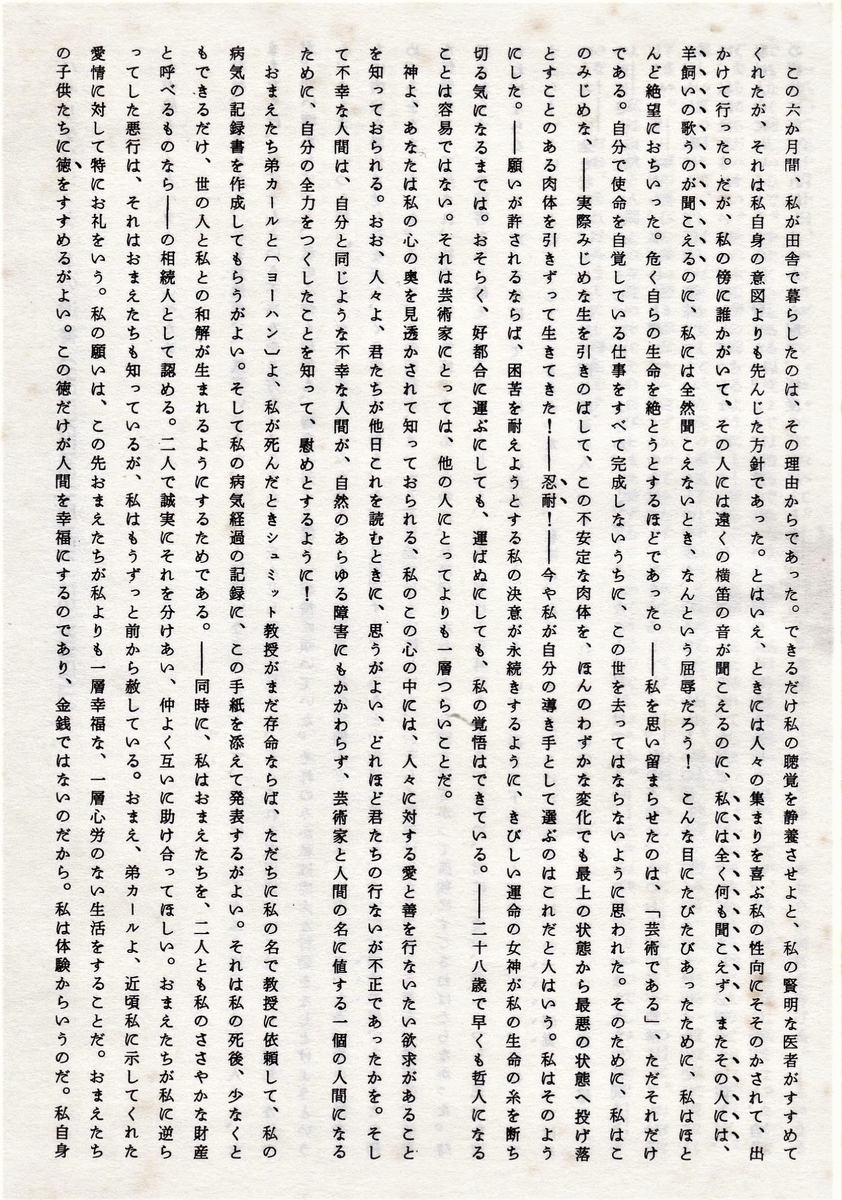 この六か月間、私が田舎で暮らしたのは、その理由からであった。できるだけ私の聴覚を静養させよと、私の賢明な医者がすすめて
くれたが、それは私自身の意図よりも先んじた方針であった。とはいえ、ときには人々の集まりを喜ぶ私の性向にそそのかされて、出
かけて行った。だが、私の傍に誰かがいて、その人には遠くの横笛の音が聞こえるのに、私には全く何も聞こえず、またその人には、
羊飼いの歌うのが聞こえるのに、私には全然聞こえないとき、なんという屈辱だろう！　こんな目にたびたびあったために、私はほと
んど絶望におちいった。危く自らの生命を絶とうとするほどであった。――私を思い留まらせたのは、「芸術である」、ただそれだけ
である。自分で使命を自覚している仕事をすべて完成しないうちに、この世を去ってはならないように思われた。そのために、私はこ
のみじめな、――実際みじめな生を引きのばして、この不安定な肉体を、ほんのわずかな変化でも最上の状態から最悪の状態へ投げ落
とすことのある肉体を引きずって生きてきた！――忍耐！――今や私が自分の導き手として選ぶのはこれだと人はいう。私はそのよう
にした。――願いが許されるならば、困苦を耐えようとする私の決意が永続きするように、きびしい運命の女神が私の生命の糸を断ち
切る気になるまでは。おそらく、好都合に運ぶにしても、運ばぬにしても、私の覚悟はできている。――二十八歳で早くも哲人になる
ことは容易ではない。それは芸術家にとっては、他の人にとってよりも一層つらいことだ。
神よ、あなたは私の心の奥を見透かされて知っておられる、私のこの心の中には、人々に対する愛と善を行ないたい欲求があること
を知っておられる。おお、人々よ、君たちが他日これを読むときに、思うがよい、どれほど君たちの行ないが不正であったかを。そし
て不幸な人間は、自分と同じような不幸な人間が、自然のあらゆる障害にもかかわらず、芸術家と人間の名に値する一個の人間になる
ために、自分の全力をつくしたことを知って、慰めとするように！
おまえたち弟カールと〔ヨーハン〕よ、私が死んだときシュミット教授がまだ存命ならば、ただちに私の名で教授に依頼して、私の
病気の記録書を作成してもらうがよい。そして私の病気経過の記録に、この手紙を添えて発表するがよい。それは私の死後、少なくと
もできるだけ、世の人と私との和解が生まれるようにするためである。――同時に、私はおまえたちを、二人とも私のささやかな財産
と呼べるものなら――の相続人として認める。二人で誠実にそれを分けあい、仲よく互いに助け合ってほしい。おまえたちが私に逆ら
ってした悪行は、それはおまえたちも知っているが、私はもうずっと前から赦している。おまえ、弟カールよ、近頃私に示してくれた
愛情に対して特にお礼をいう。私の願いは、この先おまえたちが私よりも一層幸福な、一層心労のない生活をすることだ。おまえたち
の子供たちに徳をすすめるがよい。この徳だけが人間を幸福にするのであり、金銭ではないのだから。私は体験からいうのだ。私自身